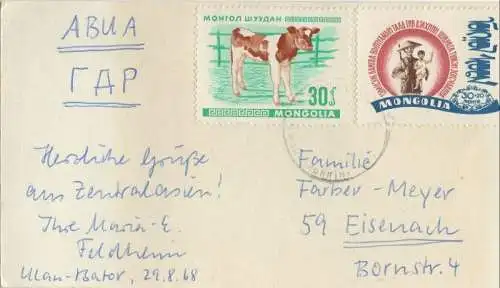 АВИА
ГДР
МОНГОЛ ШУУДАН
30
MONGOLIA
MONGOLIA
30+20
Herzliche Grüße
aus Zentralasien!
Ihre Maria-E.
Feldheim
Ulan-Bator, 29.8.68
Familie
Färber-Meyer
59 Eisenach
Bornstr. 4